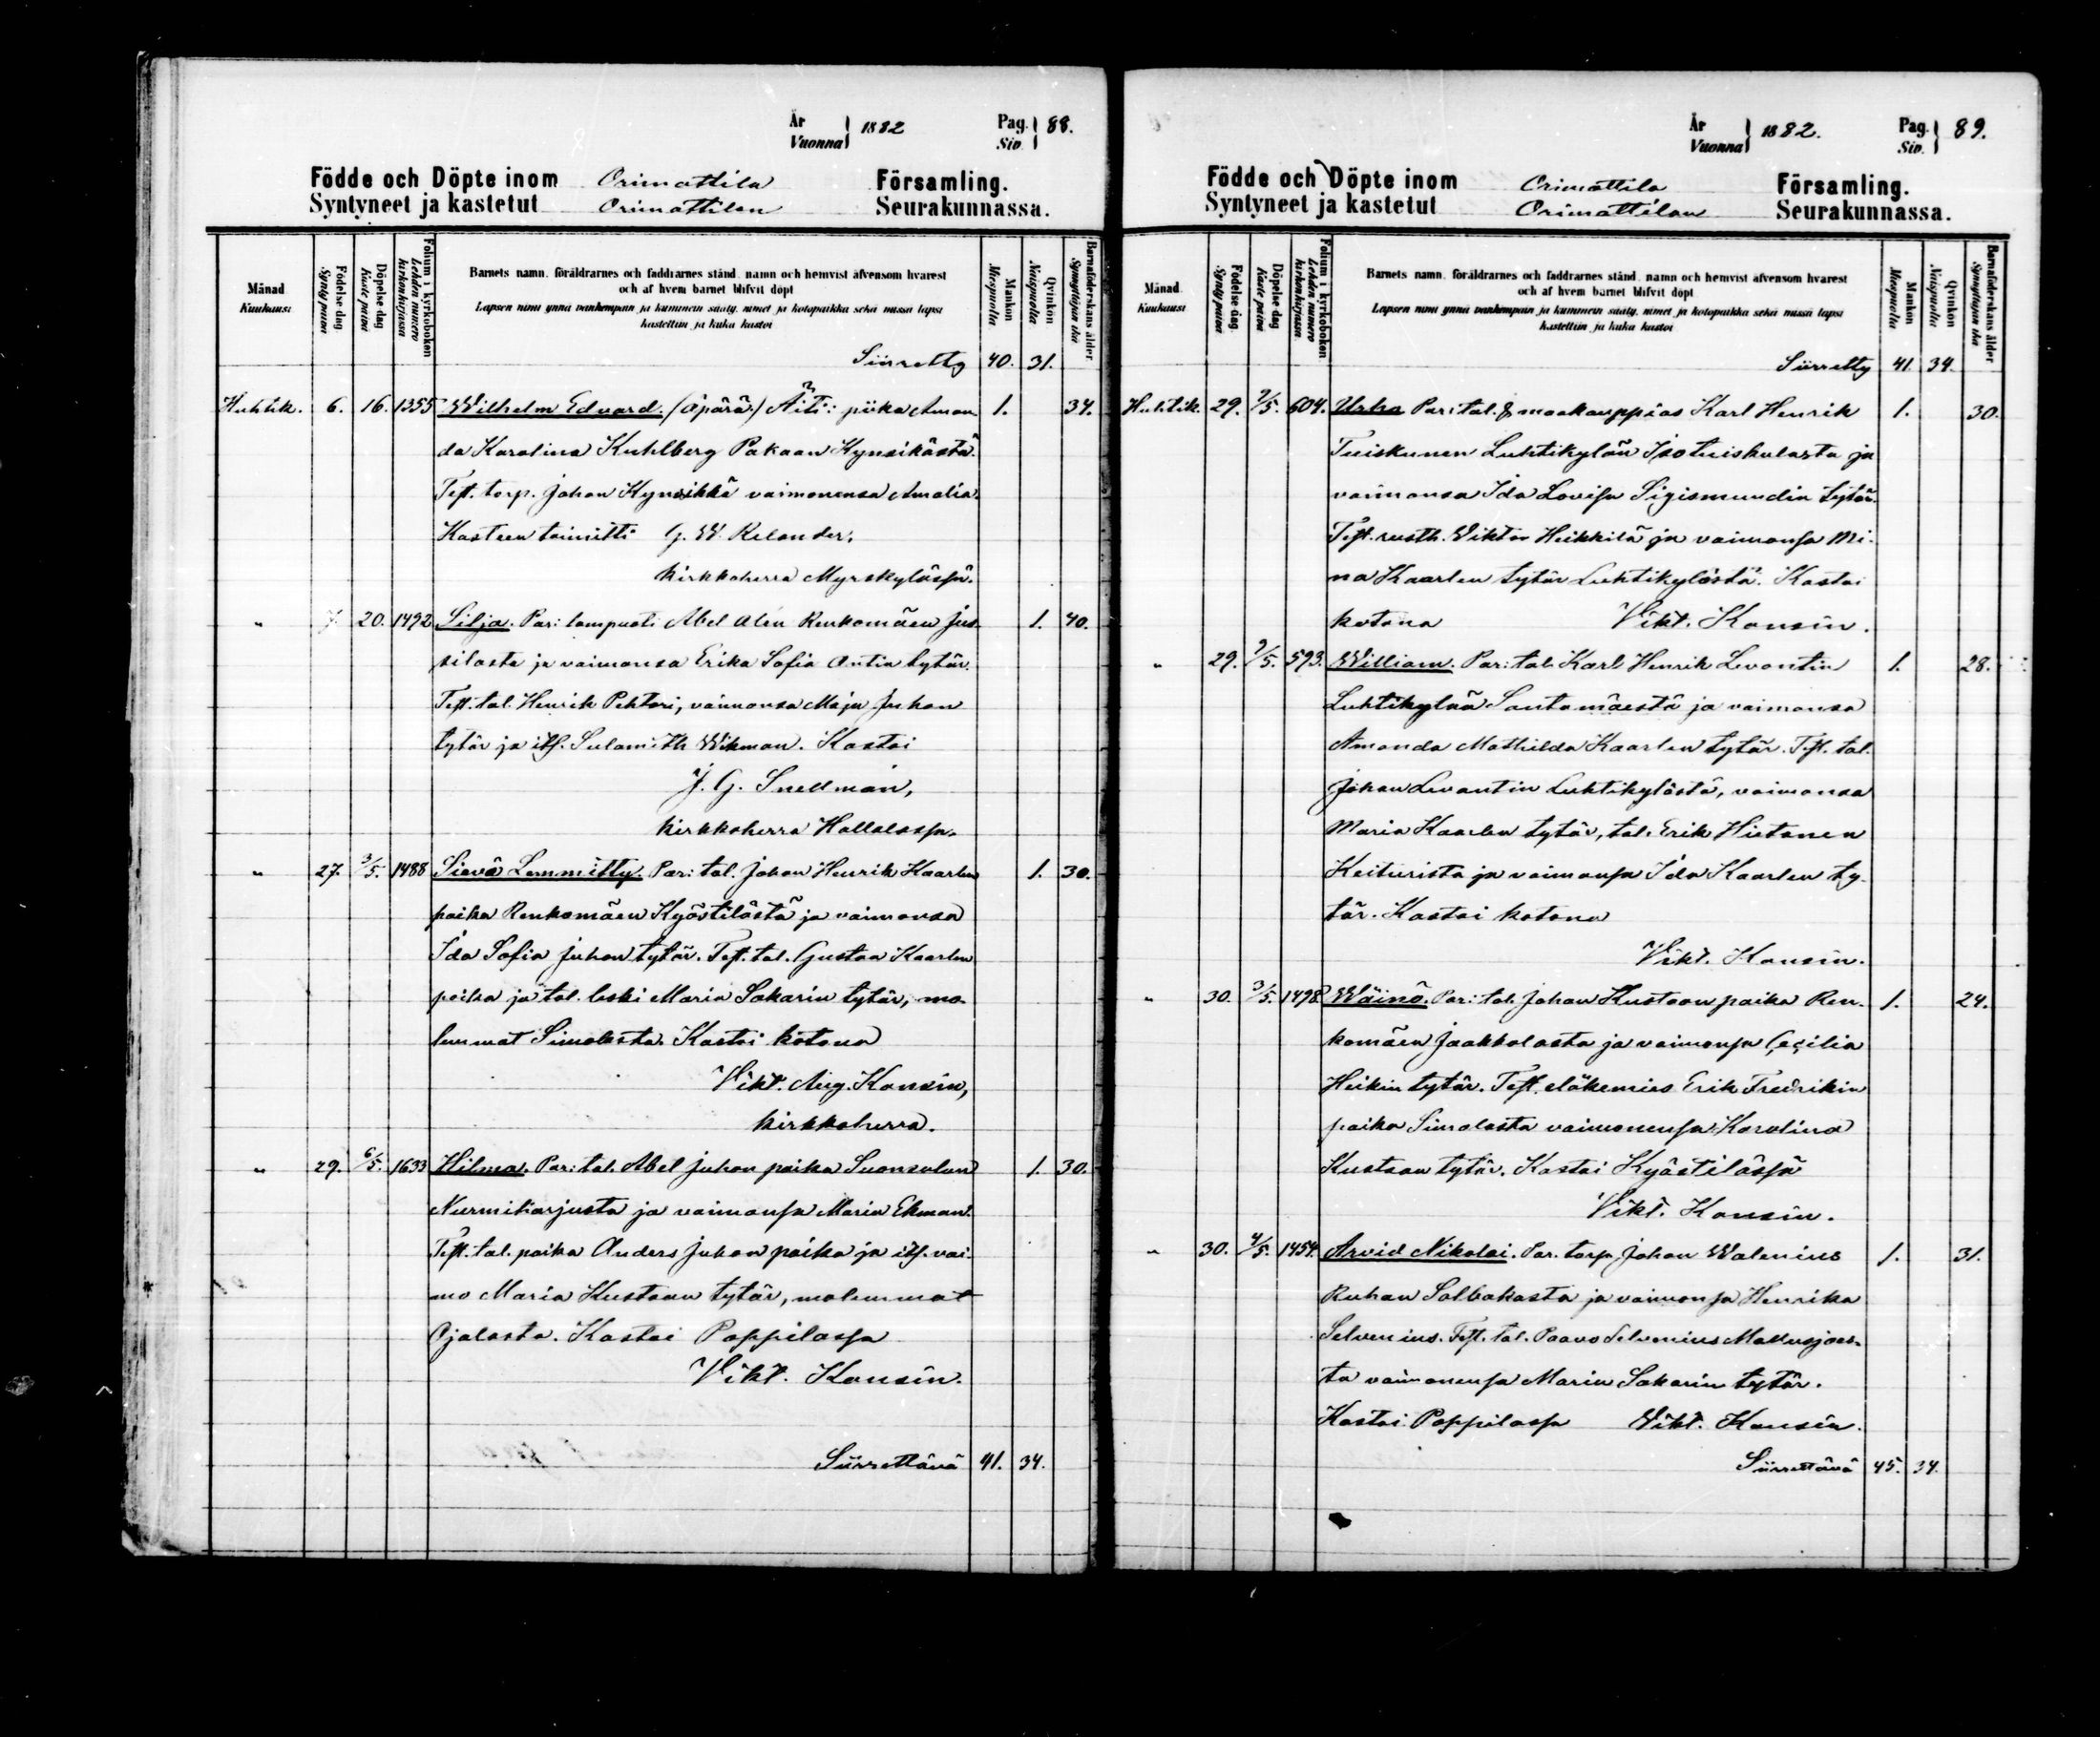 År
Vuonna } 1882 Pag. Siv. } 88.
Födde och Döpte inom Orimattila Församling.
Syntyneet ja kastetut Orimattilan Seurakunnassa.
Månad Kuukausi
Födelse dag Syntypäivä
Döpelse dag Kastepäivä
Folium i kyrkoboken Lehden numero kirkonkirjassa
Barnets namn, föräldrarnes och faddrarnes stånd, namn och hemvist äfvensom hvarest
och af hvem barnet blifvit döpt
Lapsen nimi ynnä vanhempain ja kummein sääty, nimet ja kotopaikka sekä missä lapsi
kastettiin ja kuka kastoi
Mankön Miespuolta
Qvinkön Naispuolta
Barnaföderskans ålder Synnyttäjän ikä
Siirretty 40. 31.
Huhtik. 6. 16. 1355 Wilhelm Edvard. (Äpärä.) Äiti: piika Aman- 1. 34.
da Karolina Kuhlberg Pakaan Kynsikästä.
Test. torp. Johan Kynsikkä vaimonensa Amalia.
Kasteen toimitti G. W. Relander,
kirkkoherra Myrskylässä.
" 7. 20. 1492 Silja. Par: lampuoti Abel Alén Renkomäen Jus- 1. 40.
silasta ja vaimonsa Erika Sofia Antin tytär.
Test. tal. Henrik Pehtari, vaimonsa Maja Juhan
tytär ja its. Sulamith Wikman. Kastoi
J. G. Snellman,
kirkkoherra Hollolassa.
" 27. 3/5. 1488 Sievä Lemmitty. Par: tal. Johan Henrik Kaarlen 1. 30.
poika Renkomäen Kyöstilästä ja vaimonsa
Ida Sofia Juhan tytär. Test. tal. Gustaa Kaarlen
poika ja tal. leski Maria Sakarin tytär, mo-
lemmat Simolasta. Kastoi kotona
Vikt. Aug. Konsin,
kirkkoherra.
" 29. 6/5. 1633 Hilma. Par: tal. Abel Juhan poika Luonsalan 1. 30.
Nurmiharjusta ja vaimonsa Maria Ekman.
Test. tal. poika Anders Juhan poika ja its. vai-
mo Maria Kustaan tytär, molemmat
Ojalasta. Kastoi Pappilassa
Vikt. Konsin.
Siirrettävä 41. 34.
År
Vuonna } 1882. Pag. Siv. } 89.
Födde och Döpte inom Orimattila Församling.
Syntyneet ja kastetut Orimattilan Seurakunnassa.
Månad Kuukausi
Födelse dag Syntypäivä
Döpelse dag Kastepäivä
Folium i kyrkoboken Lehden numero kirkonkirjassa
Barnets namn, föräldrarnes och faddrarnes stånd, namn och hemvist äfvensom hvarest
och af hvem barnet blifvit döpt
Lapsen nimi ynnä vanhempain ja kummein sääty, nimet ja kotopaikka sekä missä lapsi
kastettiin ja kuka kastoi
Mankön Miespuolta
Qvinkön Naispuolta
Barnaföderskans ålder Synnyttäjän ikä
Siirretty 41. 34.
Huhtik. 29. 9/5. 604. Urho Par: tal. & maakauppias Karl Henrik 1. 30.
Tuiskunen Luhtikylän Isotuiskulasta ja
vaimonsa Ida Lovisa Sigismundin tytär.
Test. rusth. Viktor Heikkilä ja vaimonsa Mi-
na Kaarlen tytär Luhtikylästä. Kastoi
kotona Vikt. Konsin.
" 29. 9/5. 593. William. Par: tal. Karl Henrik Levantin 1. 28.
Luhtikylää Santamäestä ja vaimonsa
Amanda Mathilda Kaarlen tytär. Test. tal.
Johan Levantin Luhtikylästä, vaimonsa
Maria Kaarlen tytär, tal. Erik Hietanen
Keiturista ja vaimonsa Ida Kaarlen ty-
tär. Kastoi kotona
Vikt. Konsin.
" 30. 3/5. 1498 Wäinö. Par: tal. Johan Kustaan poika Ren- 1. 24.
komäen Jaakkolasta ja vaimonsa Cecilia
Heikin tytär. Test. eläkemies Erik Fredrikin
poika Simolasta vaimonensa Karolina
Kustaan tytär. Kastoi Kyöstilässä
Vikt. Konsin.
" 30. 4/5. 1454. Arvid Nikolai. Par. torp. Johan Walenius 1. 31.
Ruhan Salbakasta ja vaimonsa Henrika
Selvenius. Test. tal. Paavo Selvenius Mallusjoes-
ta vaimonensa Maria Sakarin tytär.
Kastoi Pappilassa Vikt. Konsin.
Siirrettävä 45. 34.